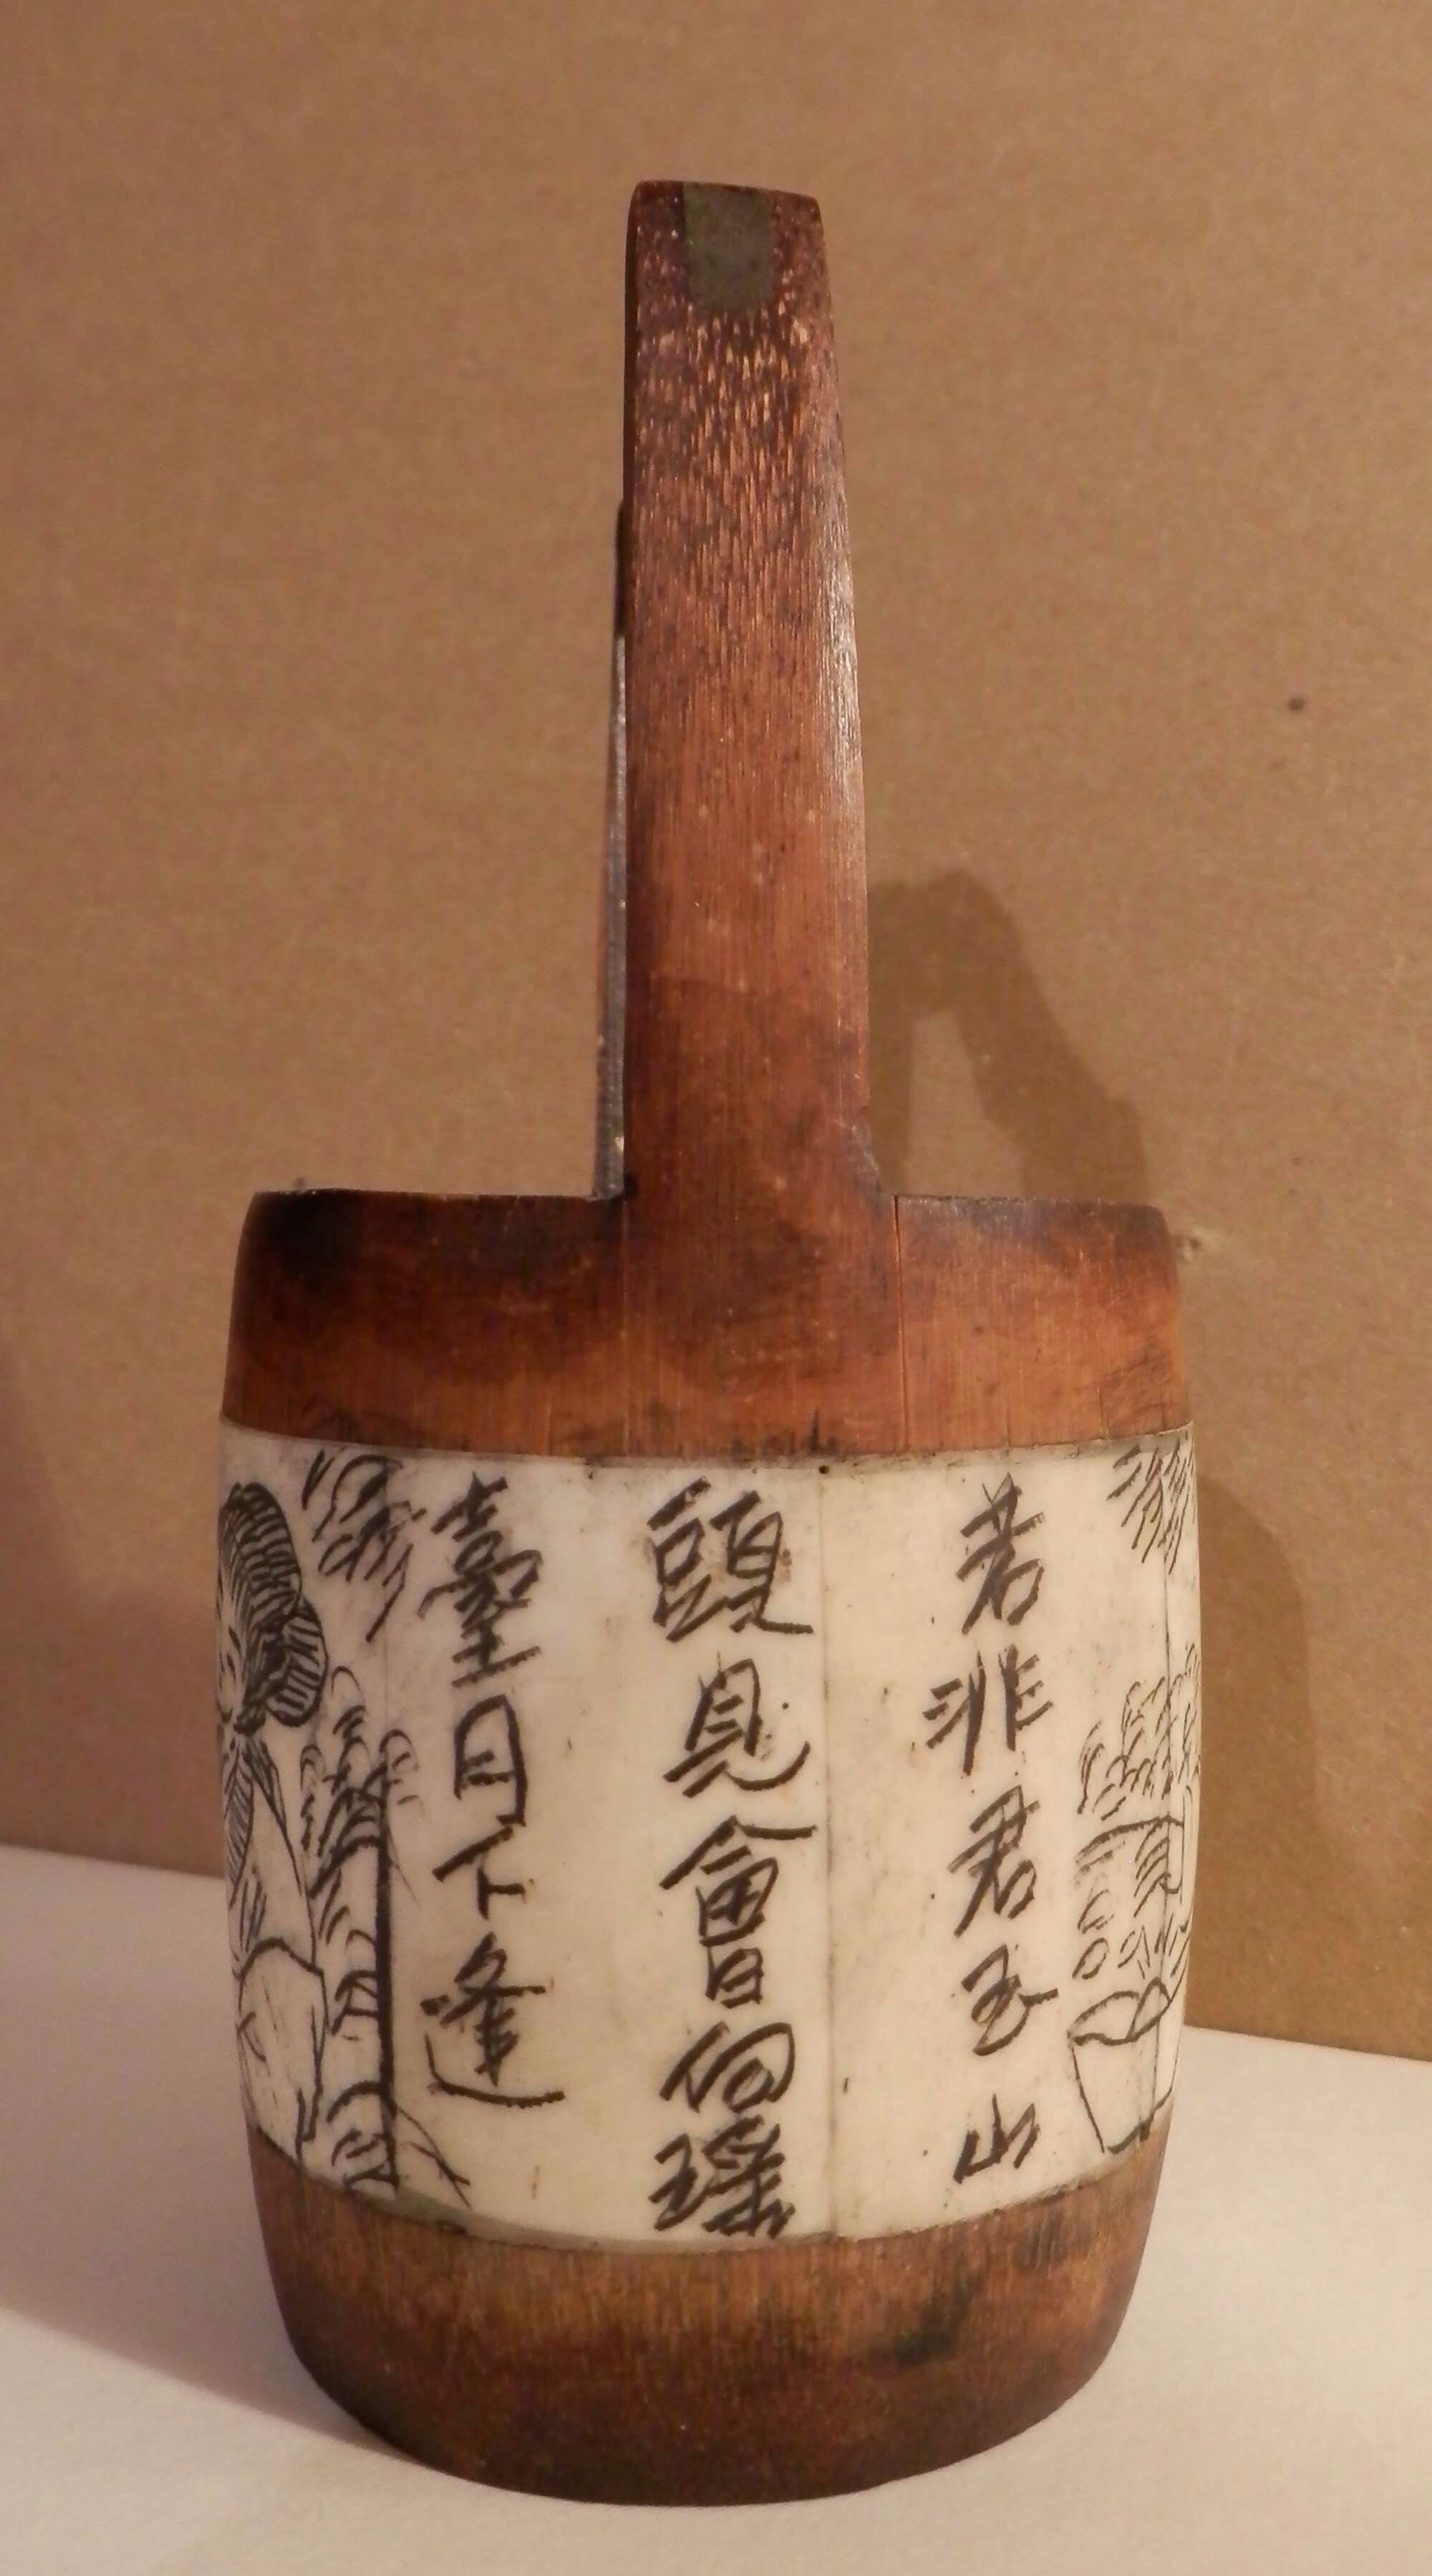 若非君玉山
頭見會向瑤
臺月下逢